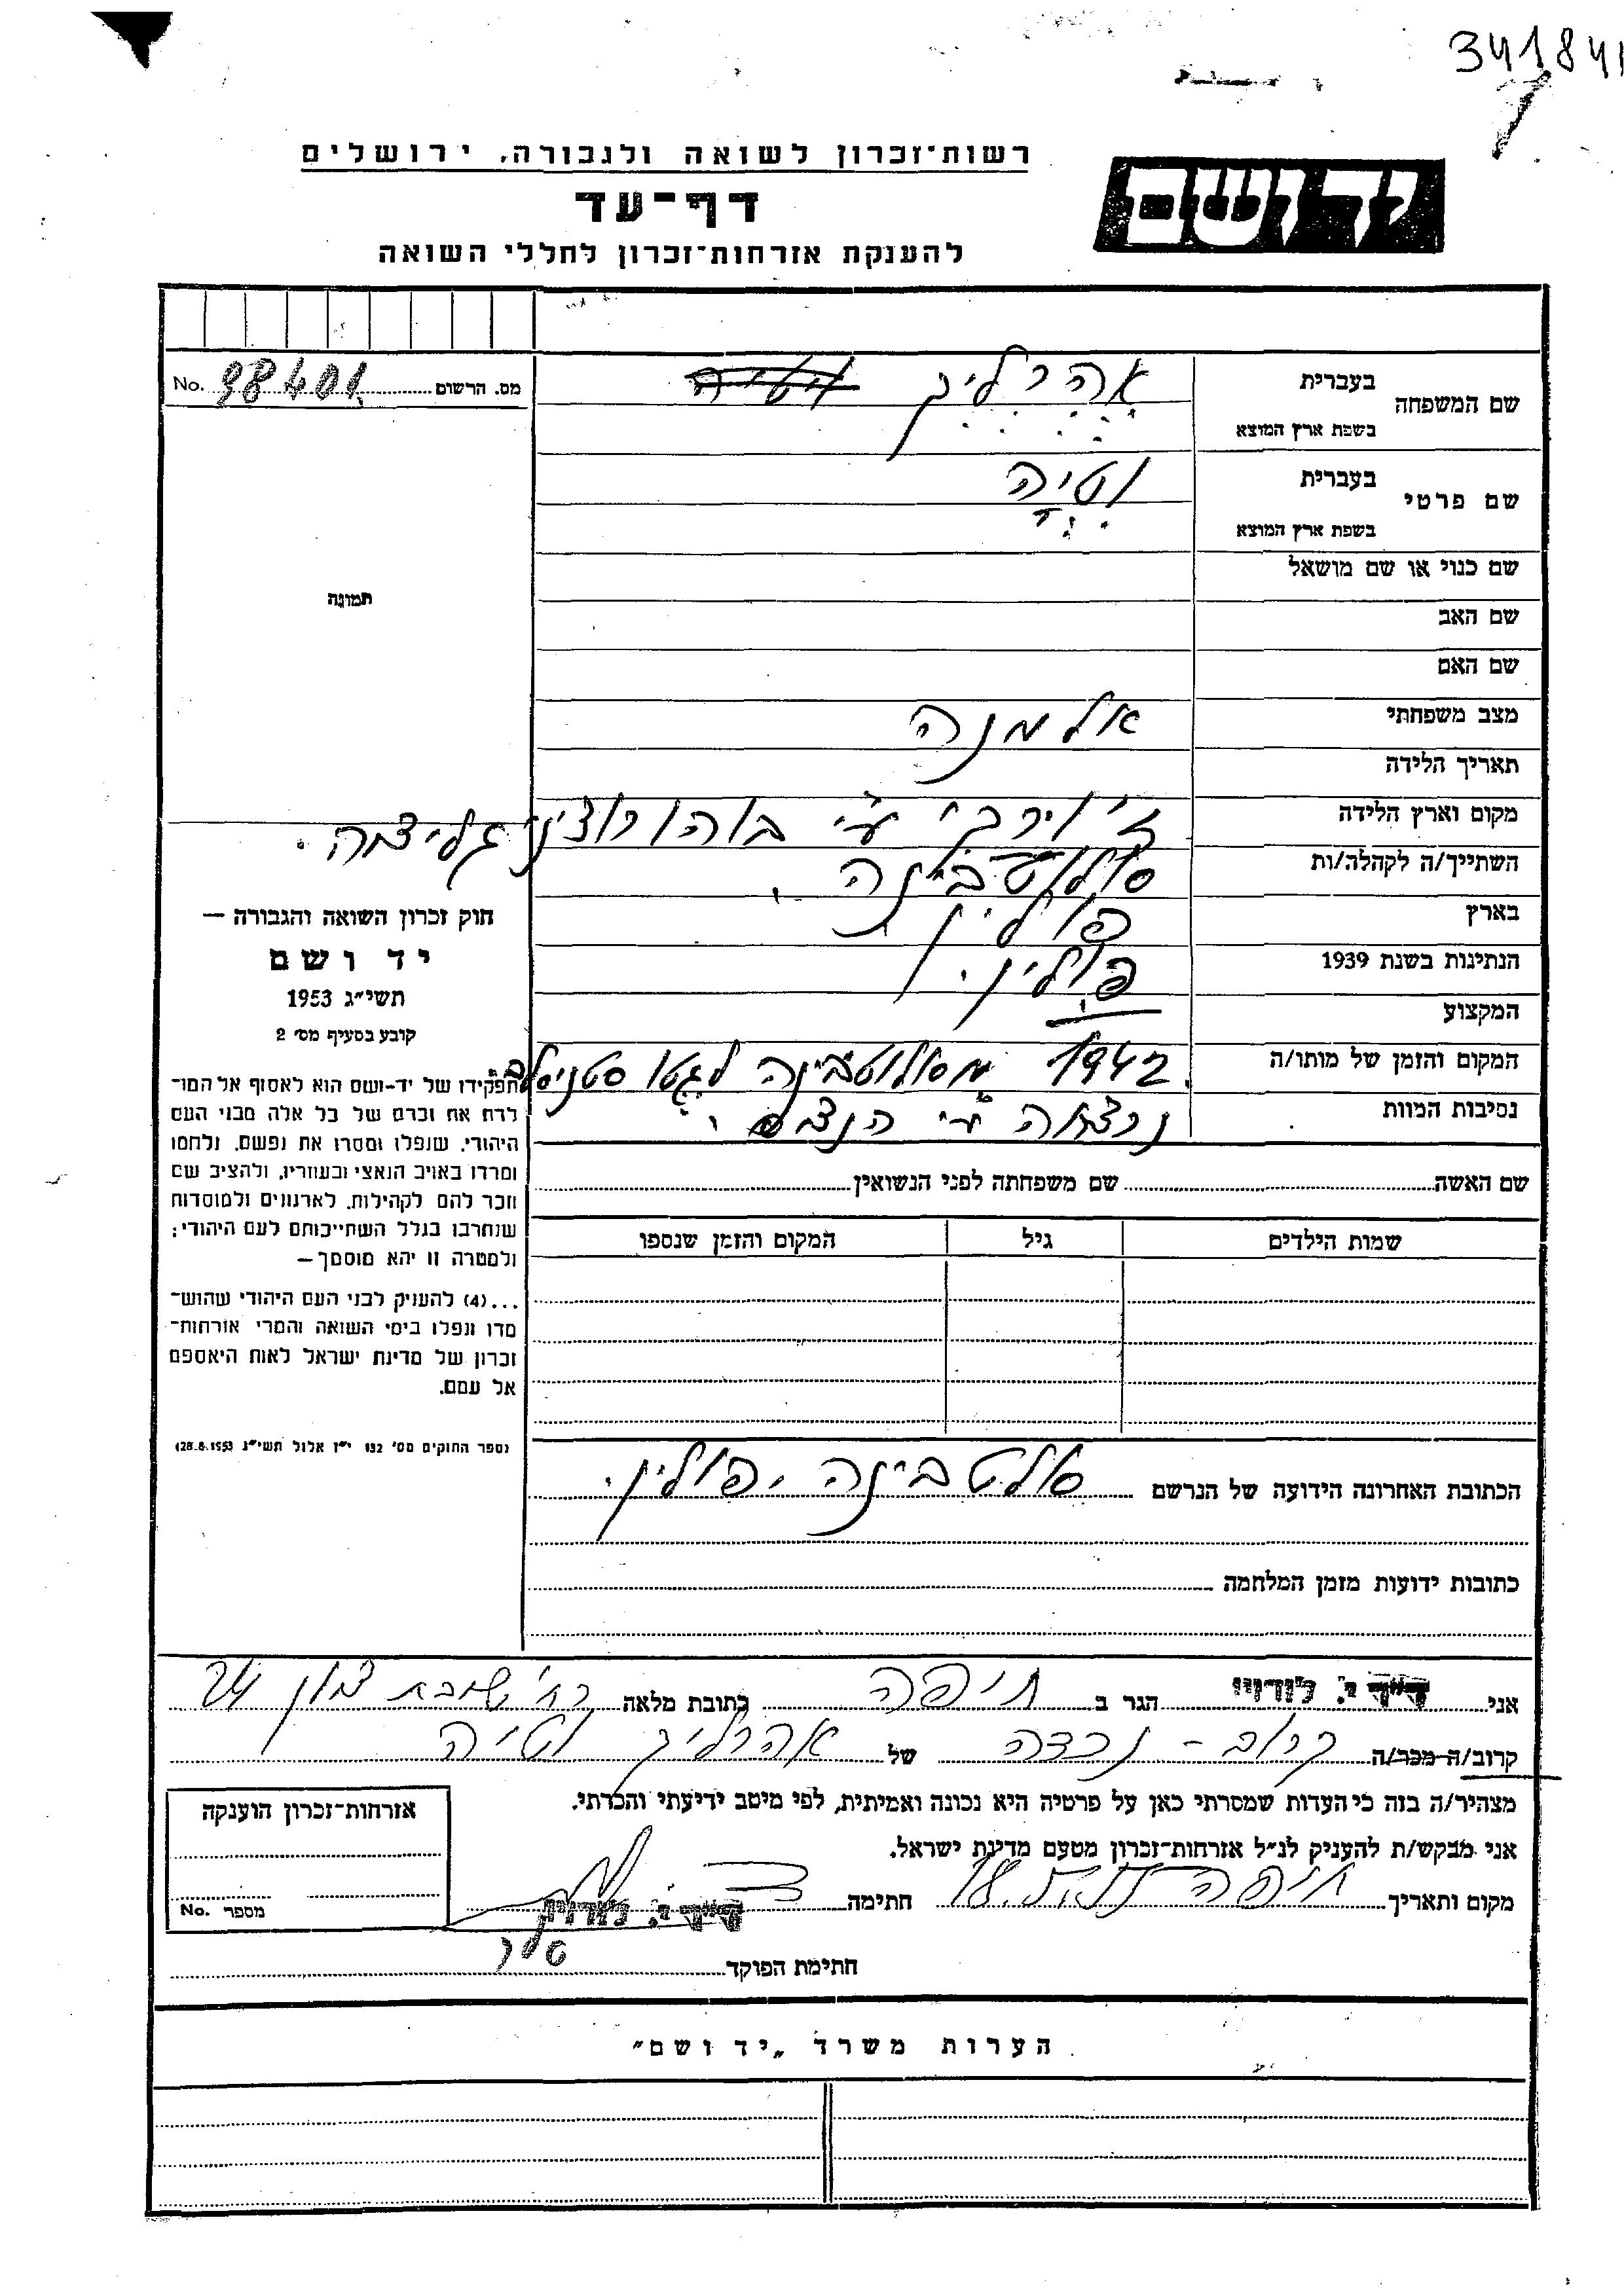 341841
רשות־זכרון לשואה ולגבורה, ירושלים
יד ושם
דף־עד
להענקת אזרחות־זכרון לחללי השואה
מס. הרשום No. 98401
שם המשפחה
בעברית אהרליך
בשפת ארץ המוצא
שם פרטי
בעברית וטיה
בשפת ארץ המוצא
שם כנוי או שם מושאל
שם האב
שם האם
מצב משפחתי אלמנה
תאריך הלידה
מקום וארץ הלידה ז'ורקי ע"י בוהורוצין גליציה.
השתייך/ה לקהלה/ות סולוטבינה.
בארץ פולין
הנתינות בשנת 1939 פולין.
המקצוע
המקום והזמן של מותו/ה 1942 מסולוטבינה לגטו
נסיבות המוות נרצחה ע"י
שם האשה שם משפחתה לפני הנשואין
שמות הילדים גיל המקום והזמן שנספו
תמונה
חוק זכרון השואה והגבורה —
יד ושם
תשי״ג 1953
קובע בסעיף מס׳ 2
תפקידו של יד־ושם הוא לאסוף אל המו־
לדת את זכרם של כל אלה מבני העם
היהודי, שנפלו ומסרו את נפשם, נלחמו
ומרדו באויב הנאצי ובעוזריו, ולהציב שם
וזכר להם לקהילות, לארגונים ולמוסדות
שנחרבו בגלל השתייכותם לעם היהודי;
ולמטרה זו יהא מוסמך —
...(4) להעניק לבני העם היהודי שהוש־
מדו ונפלו בימי השואה והמרי אזרחות־
זכרון של מדינת ישראל לאות היאספם
אל עמם.
(ספר החוקים מס׳ 132 י״ז אלול תשי״ג 28.8.1953)
הכתובת האחרונה הידועה של הנרשם סולטבינה, פולין.
כתובות ידועות מזמן המלחמה
אני ד״ר י. לודויג הגר ב חיפה כתובת מלאה רח' שיבת ציון 24
קרוב/ה מכר/ה קרוב - נכדה של אהרליך וטיה
מצהיר/ה בזה כי העדות שמסרתי כאן על פרטיה היא נכונה ואמיתית, לפי מיטב ידיעתי והכרתי.
אני מבקש/ת להעניק לנ״ל אזרחות־זכרון מטעם מדינת ישראל.
מקום ותאריך חיפה חתימה ד״ר י. לודויג
חתימת הפוקד
אזרחות־זכרון הוענקה
מספר No.
הערות משרד „יד ושם״